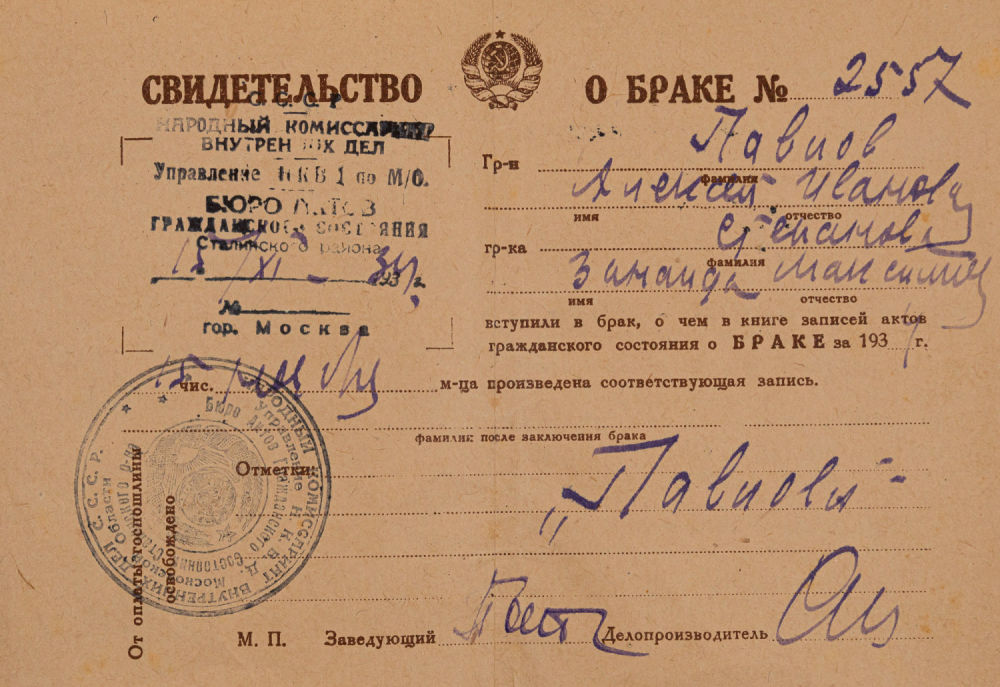 СВИДЕТЕЛЬСТВО О БРАКЕ № 2557
С.С.С.Р
НАРОДНЫЙ КОМИССАРИАТ
ВНУТРЕННИХ ДЕЛ
Управление НКВД по М/О.
БЮРО АКТОВ
ГРАЖДАНСКОГО СОСТОЯНИЯ
Сталинского района
15/XI - 1934 г.
№
гор. Москва
Гр-н Павлов
фамилия
Алексей Иванов
имя отчество
гр-ка Степанова
фамилия
Зинаида Максимов
имя отчество
вступили в брак, о чем в книге записей актов
гражданского состояния о БРАКЕ за 1934 г.
15 чис. ноября м-ца произведена соответствующая запись.
фамилии после заключения брака
Отметки:
„Павловы"
От оплаты госпошлины
освобождено
М. П. Заведующий Делопроизводитель
НАРОДНЫЙ КОМИССАРИАТ ВНУТРЕННИХ ДЕЛ С.С.С.Р.
Управление Н.К.В.Д. Московской Области
Бюро Актов Гражданского Состояния